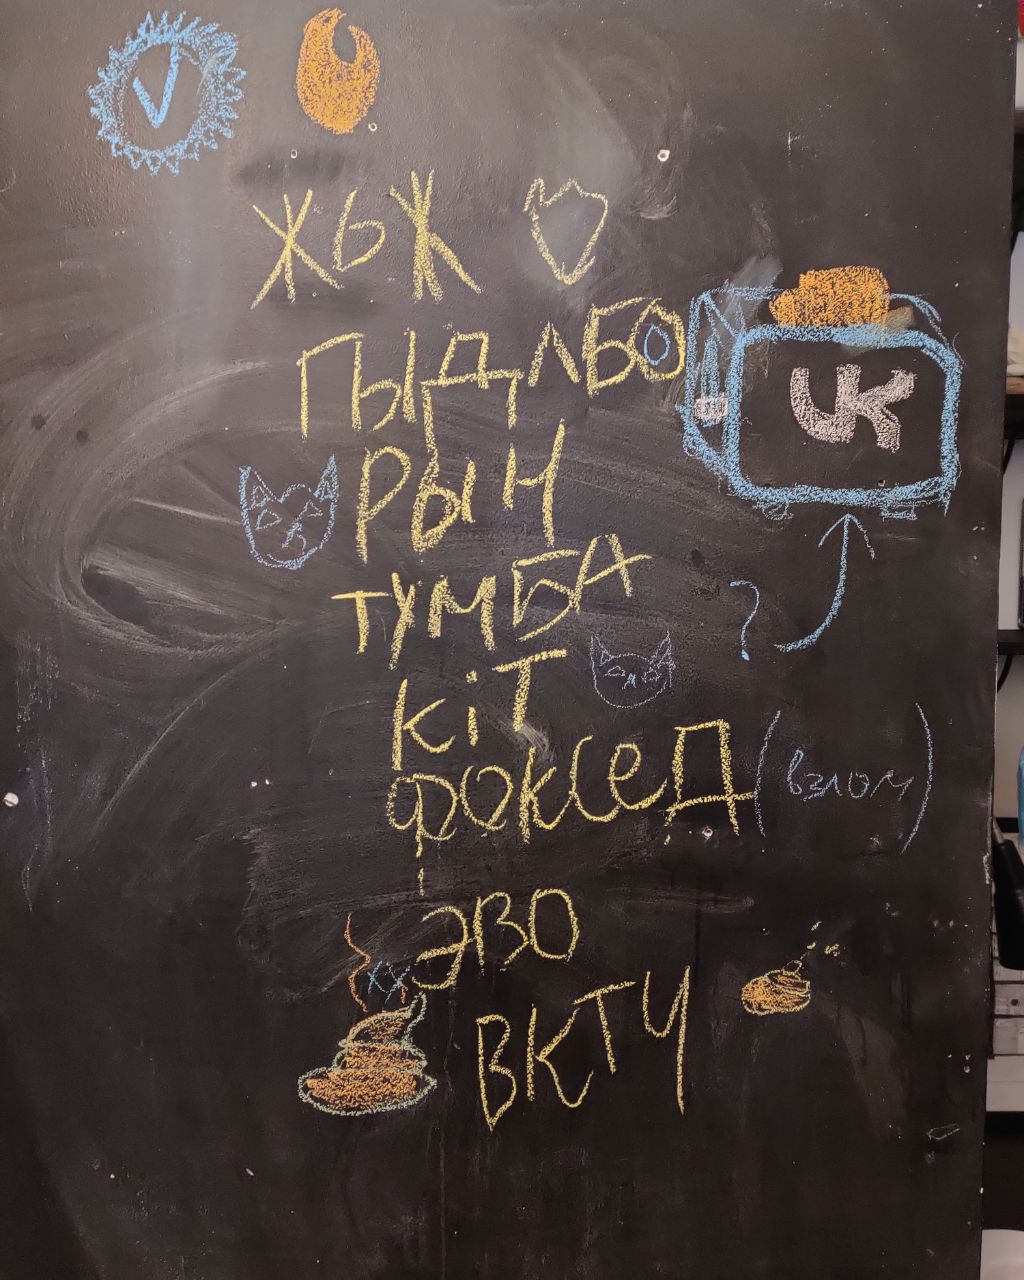 ЖЬЖ
ГЫДЛБО
РЫН
ТУМБА
КіТ
ФОКСЕД (взлом)
ЭВО
ВКТЧ
?